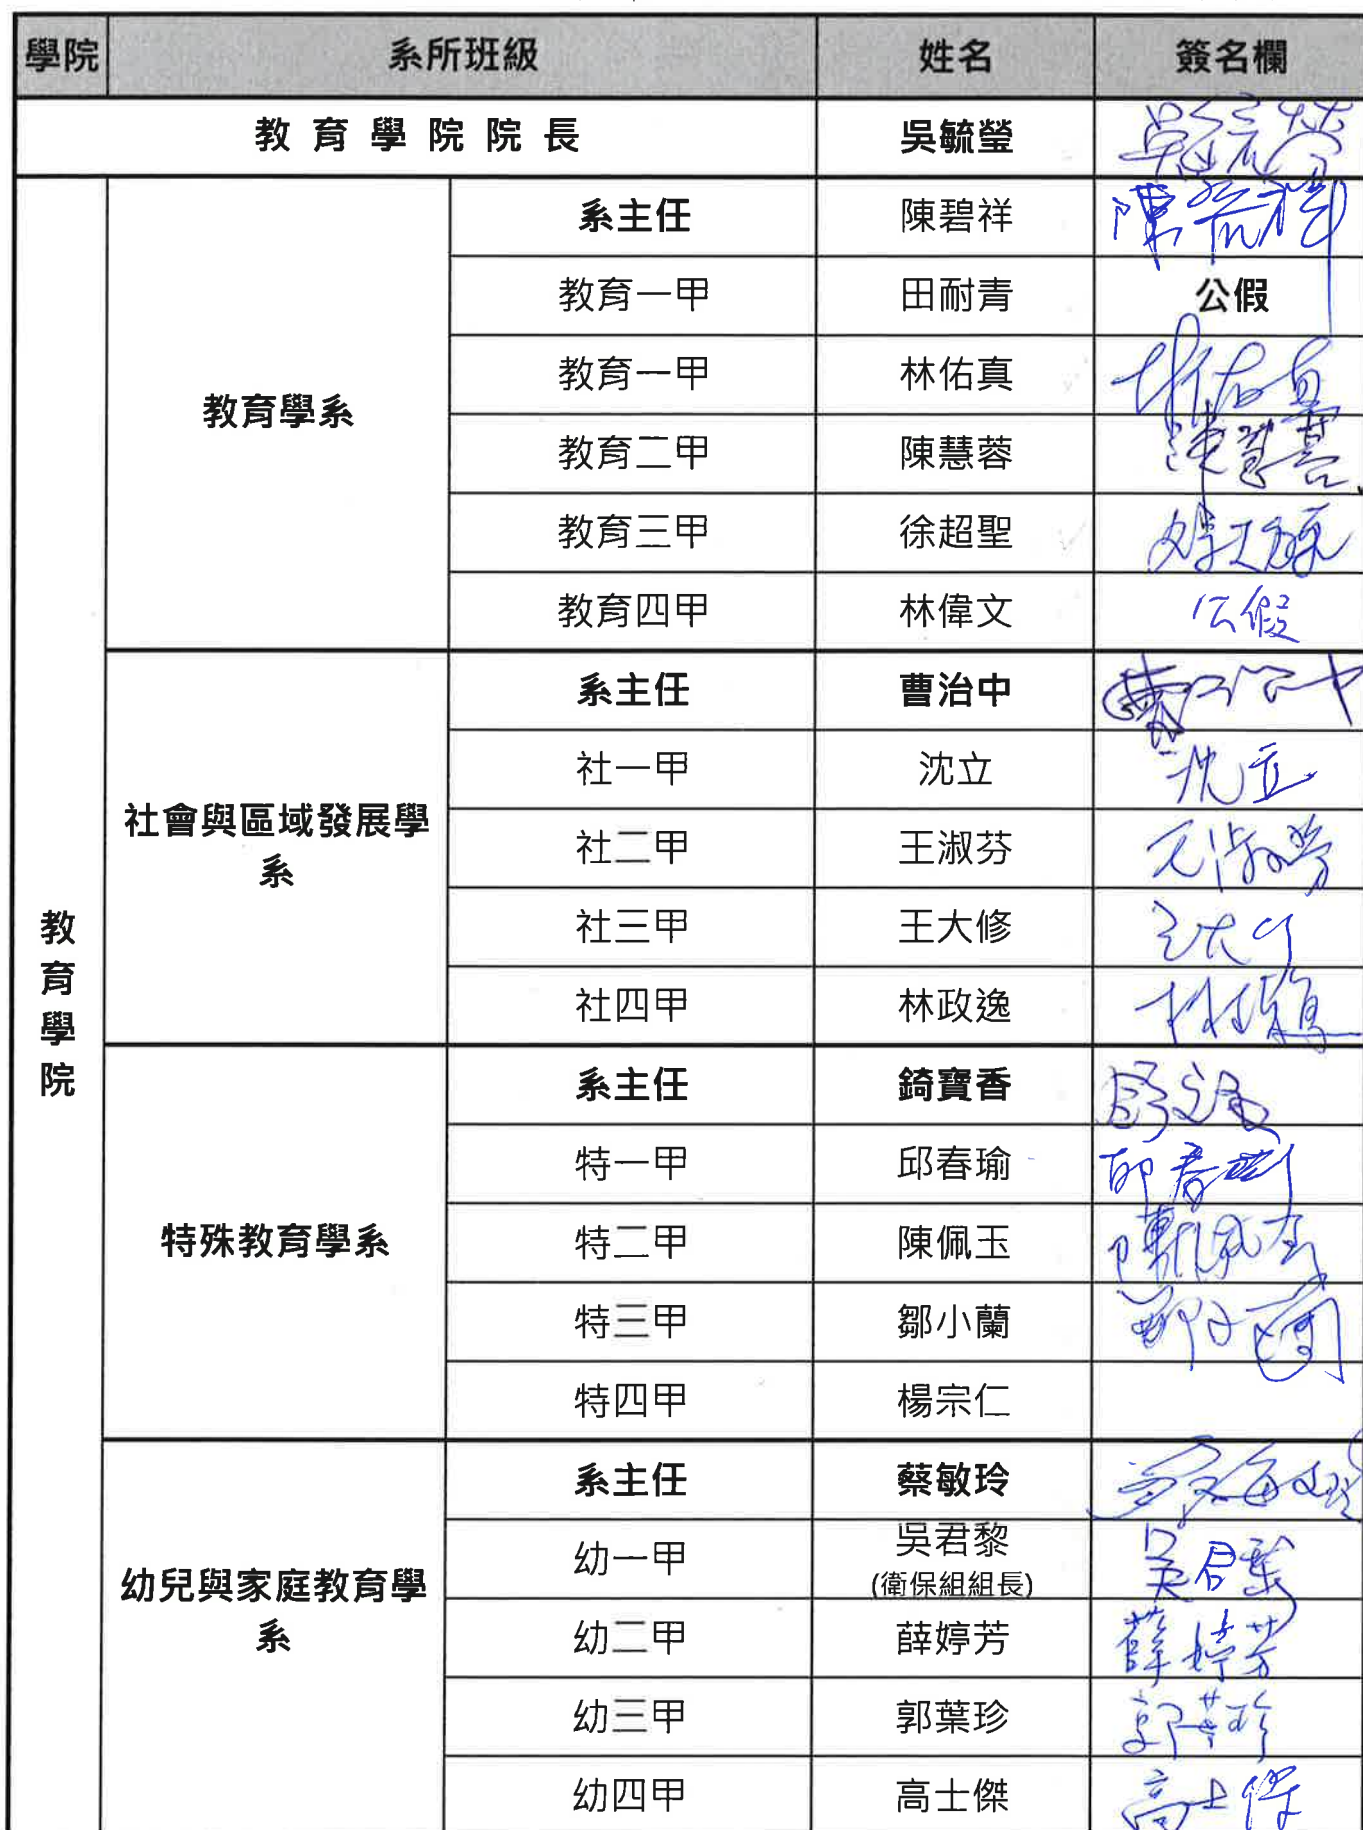 學院 系所班級 姓名 簽名欄
教育學院院長 吳毓瑩 吳毓瑩
教育學院
教育學系
系主任 陳碧祥 陳碧祥
教育一甲 田耐青 公假
教育一甲 林佑真 林佑真
教育二甲 陳慧蓉 陳慧蓉
教育三甲 徐超聖
教育四甲 林偉文 公假
社會與區域發展學
系
系主任 曹治中 曹治中
社一甲 沈立 沈立
社二甲 王淑芬 王淑芬
社三甲 王大修 王大修
社四甲 林政逸
特殊教育學系
系主任 錡寶香
特一甲 邱春瑜 邱春瑜
特二甲 陳佩玉 陳佩玉
特三甲 鄒小蘭 鄒小蘭
特四甲 楊宗仁
幼兒與家庭教育學
系
系主任 蔡敏玲 蔡敏玲
幼一甲 吳君黎 吳君黎
(衛保組組長)
幼二甲 薛婷芳 薛婷芳
幼三甲 郭葉珍 郭葉珍
幼四甲 高士傑 高士傑